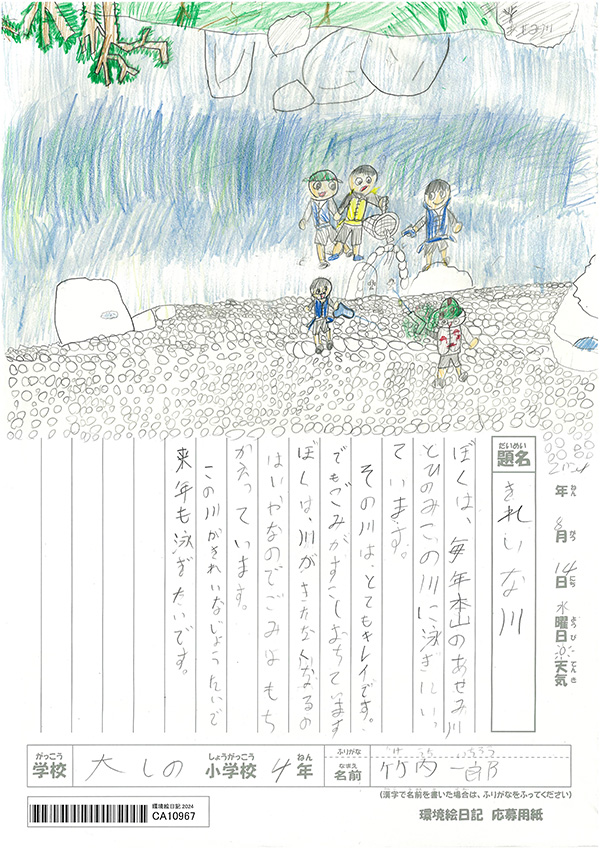 2024年8月14日水曜日天気
題名 きれいな川
ぼくは、毎年本山のあせみ川
とひのみこの川に泳ぎにいっ
ています。
その川は、とてもキレイです。
でもごみがすこしおちています
ぼくは、川がきたなくなるの
はいやなのでごみはもち
かえっています。
この川がきれいなじょうたいで
来年も泳ぎたいです。
がっこう
学校 大しの
しょうがっこう ねん
小学校 4年
ふりがな
なまえ
名前 竹内 一郎
(漢字で名前を書いた場合は、ふりがなをふってください)
環境絵日記 応募用紙
環境絵日記 2024
CA10967